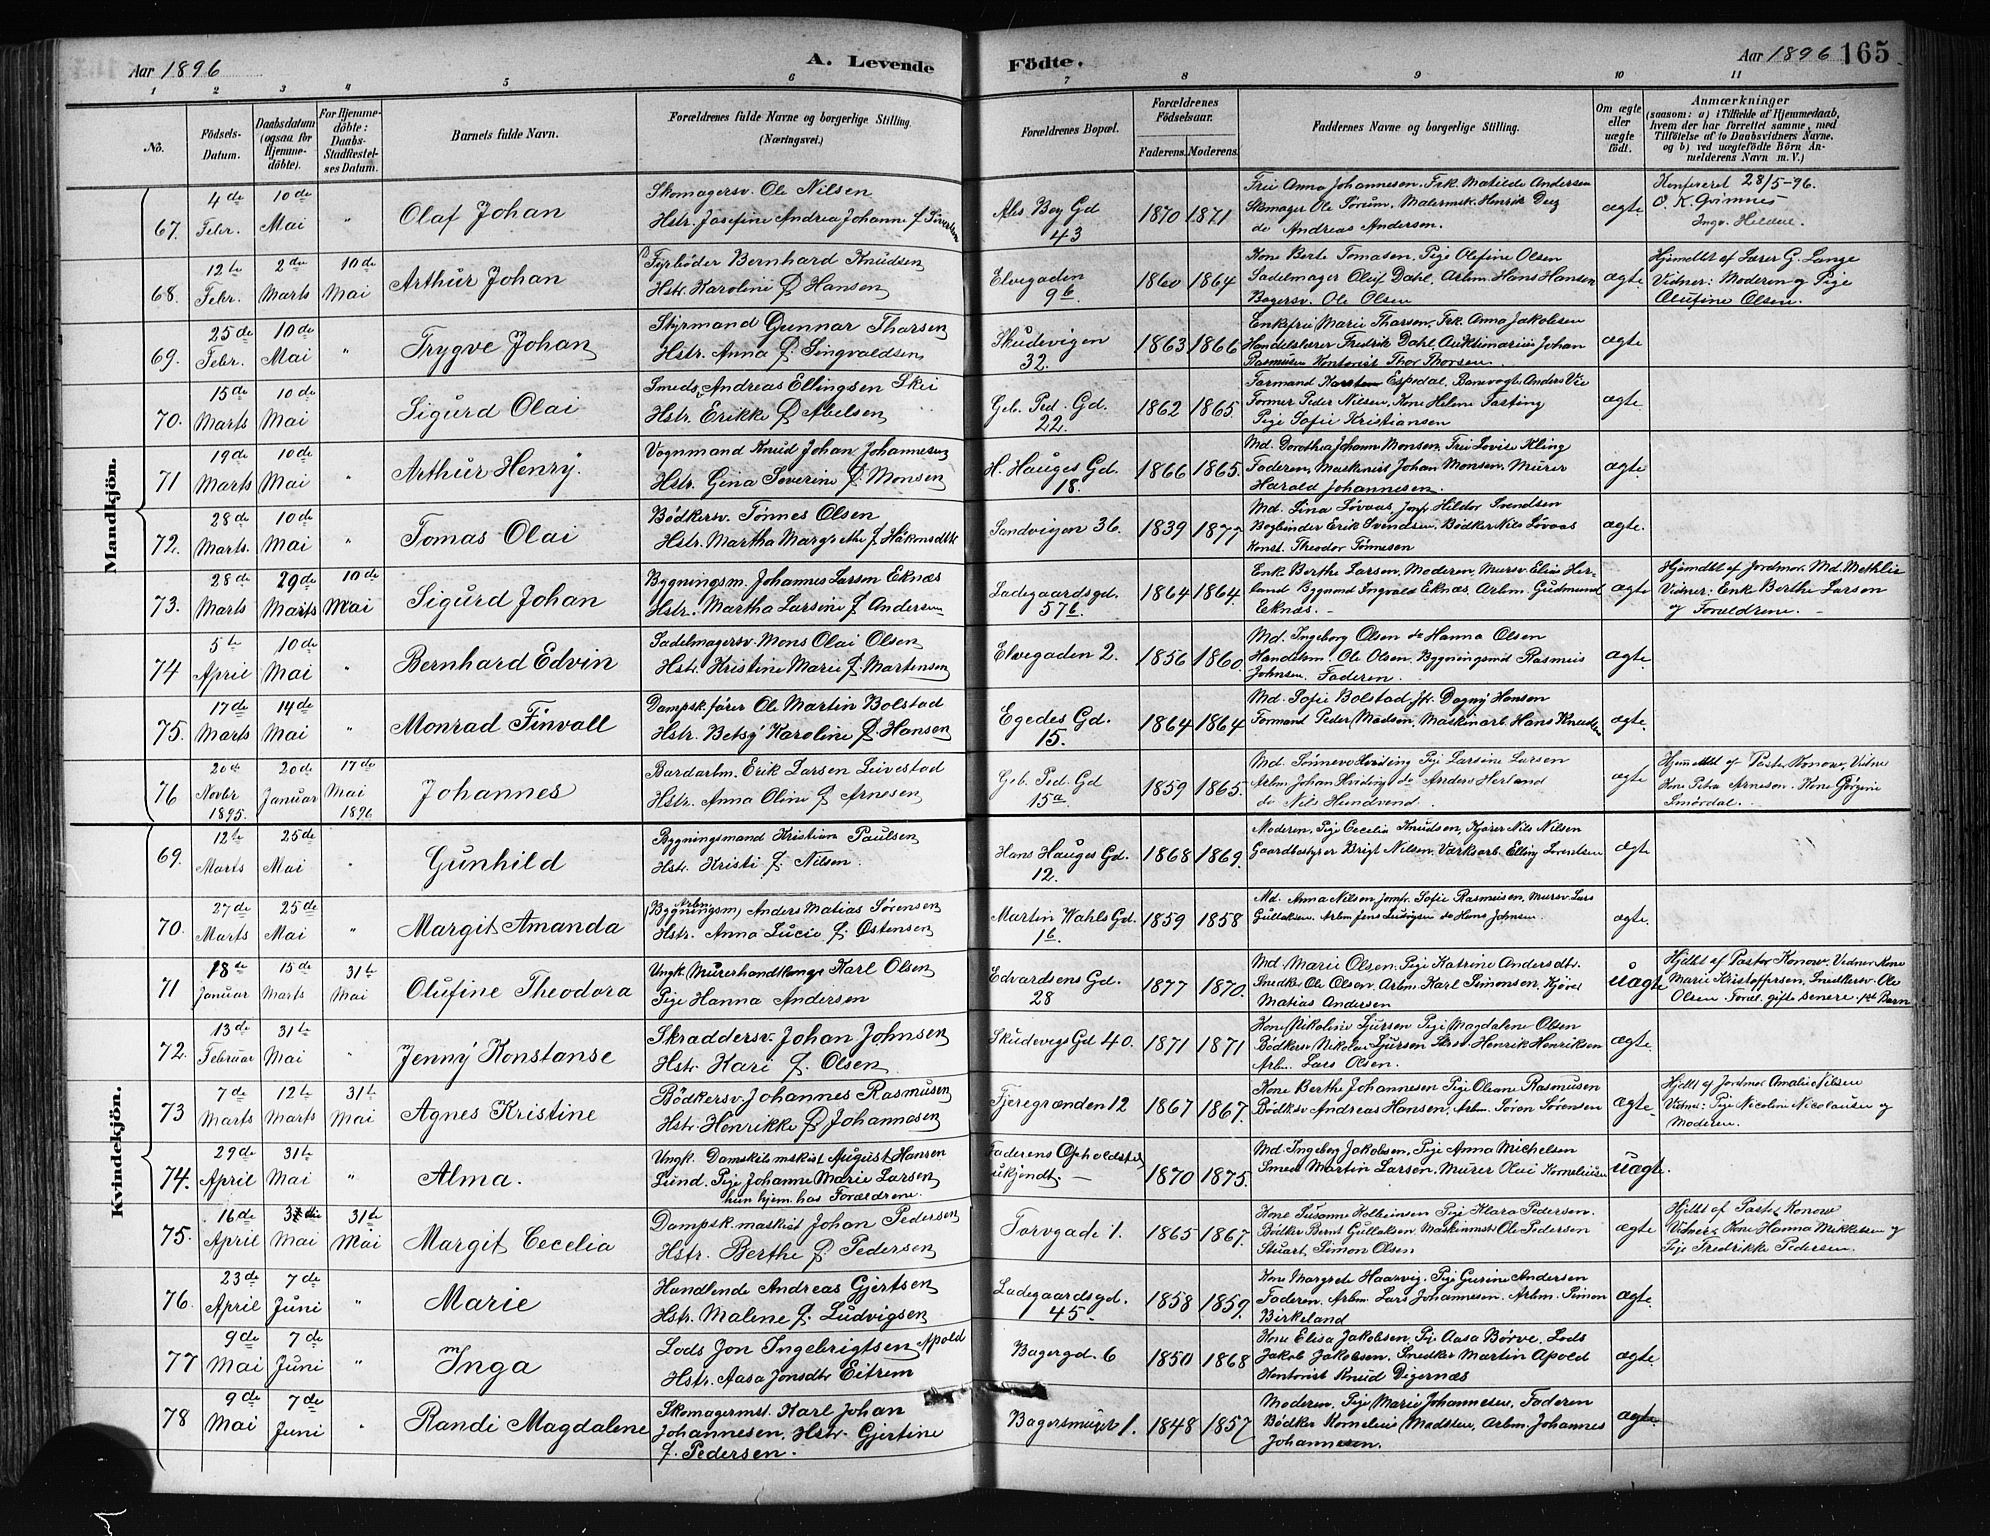 Aar 1896
A. Levende
Födte.
Aar 1896
165
1 2 3 4 5 6 7 8 9 10 11
No.
Födsels-Datum.
Daabsdatum (ogsaa for Hjemmedöbte).
For Hjemmedöbte: Daabs-Stadfestelses Datum.
Barnets fulde Navn.
Forældrenes fulde Navne og borgerlige Stilling. (Næringsvei.)
Forældrenes Bopæl.
Forældrenes Födselsaar.
Faderens. Moderens.
Faddernes Navne og borgerlige Stilling.
Om ægte eller uægte født.
Anmærkninger (saasom: a) i Tilfælde af Hjemmedaab, hvem der har forrettet samme, med Tilföielse af to Daabsvidners Navne. og b) ved uægtefödte Börn Anmelderens Navn m. V.)
Mandkjön.
67. 4de Febr. 10de Mai " Olaf Johan
Skomagersv. Ole Nilsen
Hstr. Josefine Andrea Johanne f. Sivertsen
Als. Boy Gd 43 1870 1871
Frü Anna Johannesen, Frk. Matilde Andersen
Skomager Ole Sörum, Malermstr. Henrik
do Andreas Andersen.
ægte
Konfereret 28/5-96.
O. K. Grimnes
68. 12te Febr. 2den Marts 10de Mai Arthur Johan
Fyrböder Bernhard Knudsen
Hstr. Karolini f. Hansen
Elvegaden 9b. 1860 1864
Kone Berte Tomasen, Pige Olefine Olsen
Sadelmager Oluf Dahl, Arbm. Hans Hansen
Bagersv. Ole Olsen
ægte
Hjemdbt af Lærer G. Lange
Vidner: Moderen og Pige
Olufine Olsen.
69. 25de Febr. 10de Mai " Trygve Johan
Styrmand Gunnar Thorsen
Hstr. Anna f. Singvaldsen
Skudevigen 32. 1863 1866
Enkefru Marie Thorsen, Frk. Anna Jakobsen
Handelslærer Fredrik Dahl, Auktionarius Johan
Rasmusen Kontorist Thor Thorsen.
ægte
70. 15de Marts 10de Mai Sigurd Olai
Smeds. Andreas Ellingsen Skei
Hstr. Erikke f. Abelsen
Geb. Ped. Gd. 22. 1862 1865
Formand Karsten Espedal, Banevogt. Anders Vie
Former Peder Nilsen, Kone Helene Fasting
Pige Sofie Kristiansen
ægte
71 19de Marts 10de Mai " Arthur Henry.
Vognmand Knud Johan Johannesen
Hstr. Gina Severine f. Monsen
H. Hauges Gd. 18. 1866 1865.
Md. Dorothea Johann Monsen, Frü Lovise Kling
Faderen, Maskinist Johan Monsen, Murer
Harald Johannesen.
ægte
72. 28de Marts. 10de Mai " Tomas Olai
Bödkersv. Tönnes Olsen
Hstr. Martha Margrethe f. Håkonsdtr
Sandvigen 36. 1839 1877
Md. Sina Lövaas, Jonf. Hildor Svendsen
Bogbinder Erik Svendsen, Bödker Nils Lövaas
Konst. Theodor Tönnesen
ægte.
73. 28de Marts 29de Marts 10de Mai Sigurd Johan
Bygningsm. Johannes Larsen Eknæs
Hstr. Martha Larsine f. Andersen
Ladegaardsgd. 57b. 1864 1864.
Enke Berthe Larsen, Moderen, Mursv. Elias Herland
Bygmd Ingvald Eknæs, Arbm. Gudmund
Eknæs.
ægte
Hjemdbt af Jordmor. Md. Methlie
Vidner: Enk. Berthe Larsen
og Forældrene.
74 5te April 10de Mai " Bernhard Edvin
Sadelmagersv. Mons Olai Olsen
Hstr. Kristine Marie f. Martensen
Elvegaden 2. 1856 1860.
Md. Ingeborg Olsen do Hanna Olsen
Handelsm. Ole Olsen, Bygningsmd Rasmus
Johnsen. Faderen.
ægte.
75. 17de Marts 14de Mai " Monrad Finvall
Dampsk.förer Ole Martin Bolstad
Hstr. Betsy Karoline f. Hansen
Egedes Gd. 15. 1864 1864
Md. Sofie Bolstad, Jfr. Dagny Hansen
Formand Peder Madsen, Maskinarb. Hans Knudsen
ægte.
76 20de Novbr 1895. 20de Januar 17de Mai 1896 Johannes
Bordarbm. Erik Larsen Leivestad
Hstr. Anna Oline f. Arnesen
Geb. Ped. Gd 15a 1859 1865.
Md. Sönneva Pige Larsine Larsen
Arbm. Johan do Anders Herland
do Nils Hundvend.
ægte
Hjemdbt af Pastor Konow, Vidne
Kone Petra Arnesen, Kone Jörgine
Smördal.
Kvindekjön.
69. 12te Marts 25de Mai " Gunhild
Bygningsmand Kristian Paulsen
Hstr. Kristi f. Nilsen.
Hans Hauges Gd. 12. 1868 1869.
Moderen, Pige Cecelia Knudsen, Kjörer Nils Nilsen
Gaardbestyrer Brigt Nilsen, Værksarb. Elling Lorendsen
ægte
70. 27de Marts 25de Mai " Margit Amanda
(Bygningsm) Arbm. Anders Matias Sörensen
Hstr. Anna Lucie f. Östensen
Martin Wahls Gd. 1b. 1859 1858
Md. Anna Nilsen, Jomfr. Sofie Rasmusen, Mursv. Lars
Gullaksen, Arbm. Jens Ludvigsen do Hans Johnsen.
ægte.
71 18de Januar 15de Marts 31te Mai Olufine Theodora
Ungk. Murerhandlanger Karl Olsen
Pige Hanna Andersen
Edvardsens Gd. 28 1877 1870.
Md. Marie Olsen, Pige Katrine Andersdtr.
Snedker Ole Olsen, Arbm. Karl Simonsen, Kjörer
Matias Andersen
uægte
Hjdbt af Pastor Konow, Vidner Kone
Marie Kristoffersen, Snedkersv. Ole
Olsen. Foræl. gifte senere. 1st Barn
72. 13de Februar 31te Mai " Jenny Konstanse
Skræddersv. Johan Johnsen
Hstr. Kari f. Olsen
Skudevigs Gd 40. 1871 1871
Kone Nikoline Sjursen Pige Magdalene Olsen
Bödkersv. Nikolai Sjursen Henrik Henriksen
Arbm. Lars Olsen.
ægte.
73 7de Marts 12te Marts 31te Mai Agnes Kristine
Bödkersv. Johannes Rasmusen
Hstr. Henrikke f. Johannesen
Fjeregrænden 12 1867 1867.
Kone Berthe Johannesen Pige Oleane Rasmusen
Bödksv Andreas Hansen, Arbm. Sören Sörensen
ægte.
Hjdbt af Jordmor Amalie Nilsen
Vidner: Pige Nicoline Nicolaisen og
Moderen.
74. 29de April 31te Mai " Alma.
Ungk. Damskibsmskist August Hansen
Lund. Pige Johanne Marie Larsen
hun hjem. hos Forældrene.
Faderens Opholdsted ukjendt. 1870 1875.
Md. Ingeborg Jakobsen, Pige Anna Michelsen
Smed Martin Larsen, Murer Olai Korneliusen
uægte.
75. 16de April 3die Mai 31te Mai Margit Cecelia
Dampsk. maskist Johan Pedersen
Hstr. Berthe f. Pedersen
Torvgade 1. 1865 1867.
Kone Susanne Kolbeinsen Pige Klara Pedersen.
Bödker Bernt Gullaksen Maskinmstr Ole Pedersen
Stuart Simon Olsen
ægte
Hjdbt af Pastor Konow
Vidner: Kone Hanna Mikkelsen og
Pige Fredrikke Pedersen.
76. 23de April 7de Juni " Marie
Handlende Andreas Gjertsen
Hstr. Malene f. Ludvigsen
Ladegaardsgd. 45 1858 1859.
Kone Margrete Haarvig, Pige Gurine Andersen
Faderen, Arbm. Lars Johannesen, Arbm. Simon
Birkeland
ægte.
77 9de Mai 7de Juni " Inga
Lods Jon Ingebrigtsen Apold
Hstr. Aasa Jonsdtr Eitrem
Bagergd. 6 1850 1868
Kone Elisa Jakobsen, Pige Aasa Börve, Lods
Jakob Jakobsen, Snedker Martin Apold
Kontorist Knud Digernæs
ægte
78 9de Mai 7de Juni " Randi Magdalene
Skomagermst. Karl Johan
Johannesen, Hstr. Gjertine
f. Pedersen.
1848 1857
Moderen, Pige Marie Johannesen, Faderen
Bödker Kornelius Madsen, Arbm. Johannes
Johannesen.
ægte.